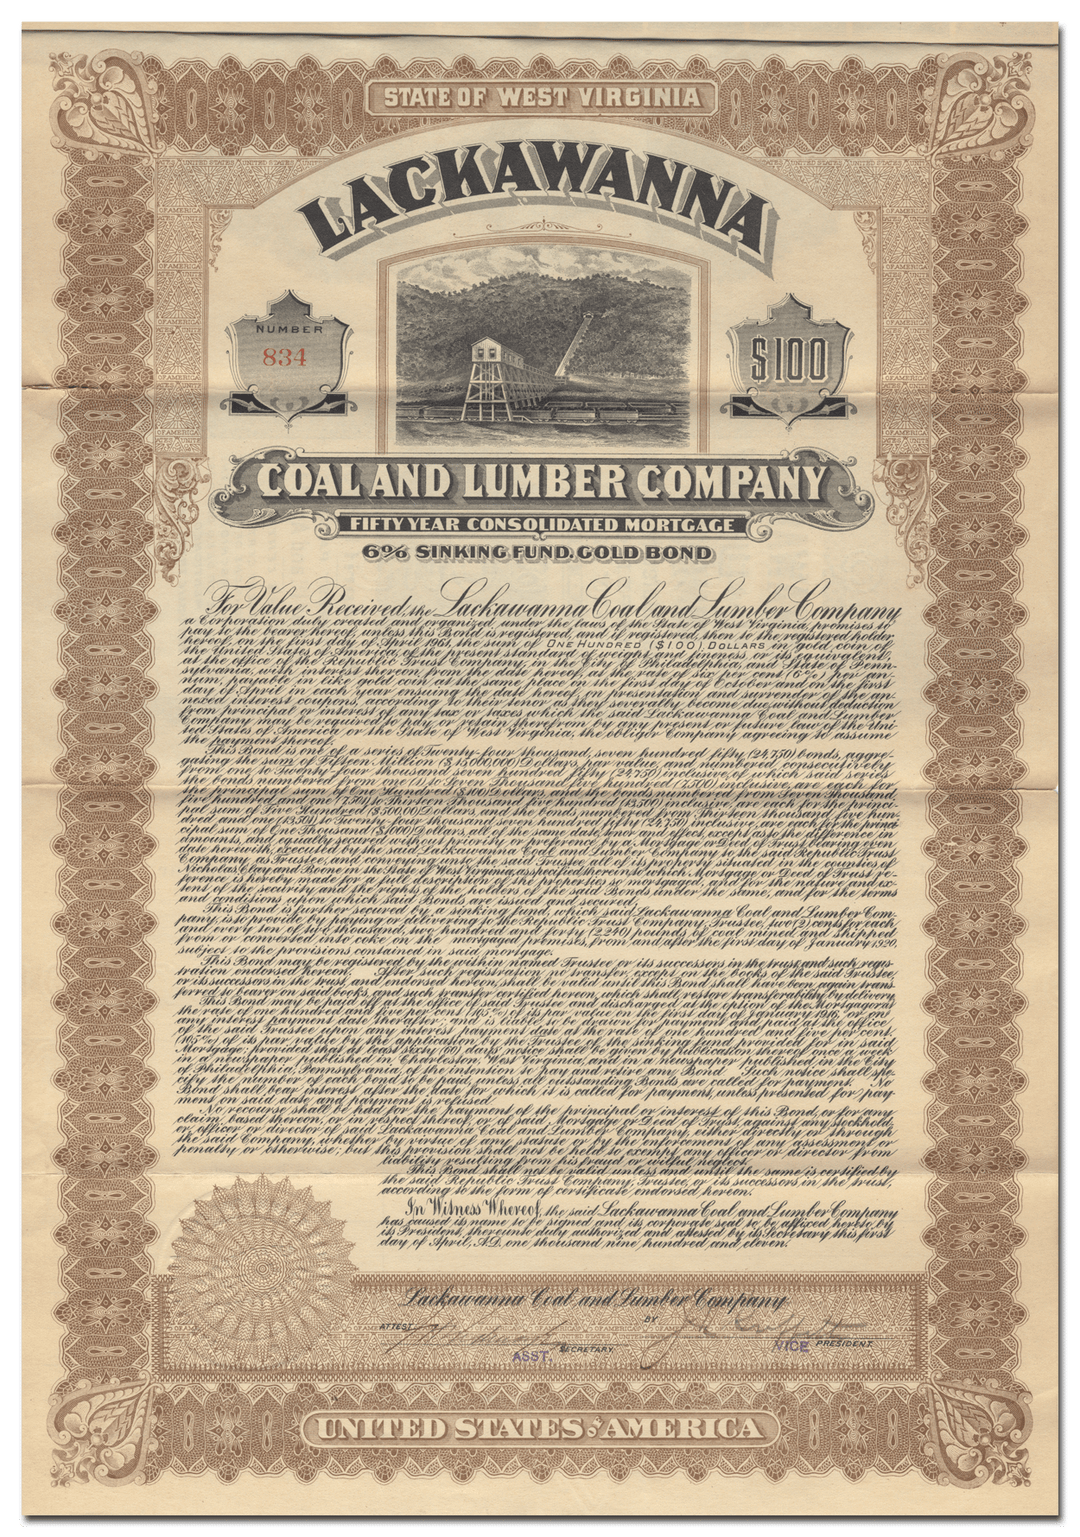 STATE OF WEST VIRGINIA
LACKAWANNA
NUMBER
834
$100
COAL AND LUMBER COMPANY
FIFTY YEAR CONSOLIDATED MORTGAGE
6% SINKING FUND GOLD BOND
For Value Received, the Lackawanna Coal and Lumber Company
a Corporation duly created and organized under the laws of the State of West Virginia, promises to
pay to the bearer hereof, unless this Bond is registered, and if registered, then to the registered holder
hereof, on the first day of April 1961, the sum of ONE HUNDRED ($100) DOLLARS in gold coin of
the United States of America, of the present standard of weight and fineness or its equivalent,
at the office of the Republic Trust Company, in the City of Philadelphia, and State of Penn-
sylvania, with interest thereon from the date hereof, at the rate of six per cent (6%) per an-
num, payable in like gold coin at the same place on the first day of October and on the first
day of April in each year ensuing the date hereof, on presentation and surrender of the an-
nexed interest coupons, according to their tenor as they severally become due, without deduction
from principal or interest of any tax or taxes which the said Lackawanna Coal and Lumber
Company may be required to pay or retain therefrom by any present or future law of the Uni-
ted States of America or the State of West Virginia, the obligor Company agreeing to assume
the payment thereof.
This Bond is one of a series of Twenty-four thousand, seven hundred fifty (24,750) bonds, aggre-
gating the sum of Fifteen Million ($15,000,000) Dollars par value, and numbered consecutively
from one to Twenty-four thousand seven hundred fifty (24,750) inclusive, of which said series
the bonds numbered from one (1) to Seven Thousand five hundred (7,500) inclusive, are each for
the principal sum of One Hundred ($100) Dollars, and the bonds numbered from Seven Thousand,
five hundred and one (7,501) to Thirteen Thousand five hundred (13,500) inclusive, are each for the princi-
pal sum of Five Hundred ($500.00) Dollars, and the bonds numbered from Thirteen thousand, five hun-
dred and one (13,501) to Twenty-four thousand seven hundred fifty (24,750) inclusive, are each for the princi-
cipal sum of One Thousand ($1,000) Dollars, all of the same date, tenor and effect, except as to the difference in
amounts, and equally secured without priority or preference by a Mortgage or Deed of Trust bearing even
date herewith, executed by the said Lackawanna Coal and Lumber Company to the said Republic Trust
Company, as Trustee, and conveying unto the said Trustee all of its property situated in the counties of
Nicholas, Clay and Boone in the State of West Virginia, as specified therein to which Mortgage or Deed of Trust re-
ference is hereby made for a full description of the properties so mortgaged, and for the nature and ex-
tent of the security and the rights of the holders of the said Bonds under the same, and for the terms
and conditions upon which said Bonds are issued and secured.
This Bond is further secured by a sinking fund, which said Lackawanna Coal and Lumber Com-
pany, is to provide by paying or delivering to the Republic Trust Company, Trustee, two (2) cents for each
and every ton of two thousand, two hundred and forty (2,240) pounds of coal mined and shipped
from or converted into coke on the mortgaged premises, from and after the first day of January 1920,
subject to the provisions contained in said mortgage.
This Bond may be registered by the within named Trustee or its successors in the trust, and such regis-
tration endorsed hereon. After such registration no transfer, except on the books of the said Trustee,
or its successors in the trust, and endorsed hereon, shall be valid until this Bond shall have been again trans-
ferred to bearer on said books, and such transfer certified hereon, which shall restore transferability by delivery.
This Bond may be paid off at the office of said Trustee and discharged at the option of the Mortgagor at
the rate of one hundred and five per cent (105%) of its par value on the first day of January 1916, or on
any interest payment date thereafter; and is liable to be drawn for payment and paid at the office
of the said Trustee upon any interest payment date at the rate of one hundred and five per cent
(105%) of its par value by the application by the Trustee of the sinking fund provided for in said
Mortgage; provided that at least sixty (60) days' notice shall be given by publication thereof once a week
in a newspaper published in Charleston, West Virginia, and in a newspaper published in the City
of Philadelphia, Pennsylvania, of the intention to pay and retire any Bond. Such notice shall spe-
cify the number of each bond to be paid, unless all outstanding Bonds are called for payment. No
Bond shall bear interest after the date for which it is called for payment, unless presented for pay-
ment on said date and payment is refused.
No recourse shall be had for the payment of the principal or interest of this Bond, or for any
claim based thereon, or in respect thereof, or of said Mortgage or Deed of Trust, against any stockhold-
er, officer or director of said Lackawanna Coal and Lumber Company, either directly or through
the said Company, whether by virtue of any statute or by the enforcement of any assessment or
penalty or otherwise; but this provision shall not be held to exempt any officer or director from
liability resulting from his fraud or wilful neglect.
This Bond shall not be valid unless and until the same is certified by
the said Republic Trust Company, Trustee, or its successors in the trust,
according to the form of certificate endorsed hereon.
In Witness Whereof, the said Lackawanna Coal and Lumber Company
has caused its name to be signed and its corporate seal to be affixed hereto by
its President, thereunto duly authorized and attested by its Secretary this first
day of April, A.D. one thousand nine hundred and eleven.
Lackawanna Coal and Lumber Company
ATTEST BY
ASST. SECRETARY VICE PRESIDENT
UNITED STATES OF AMERICA